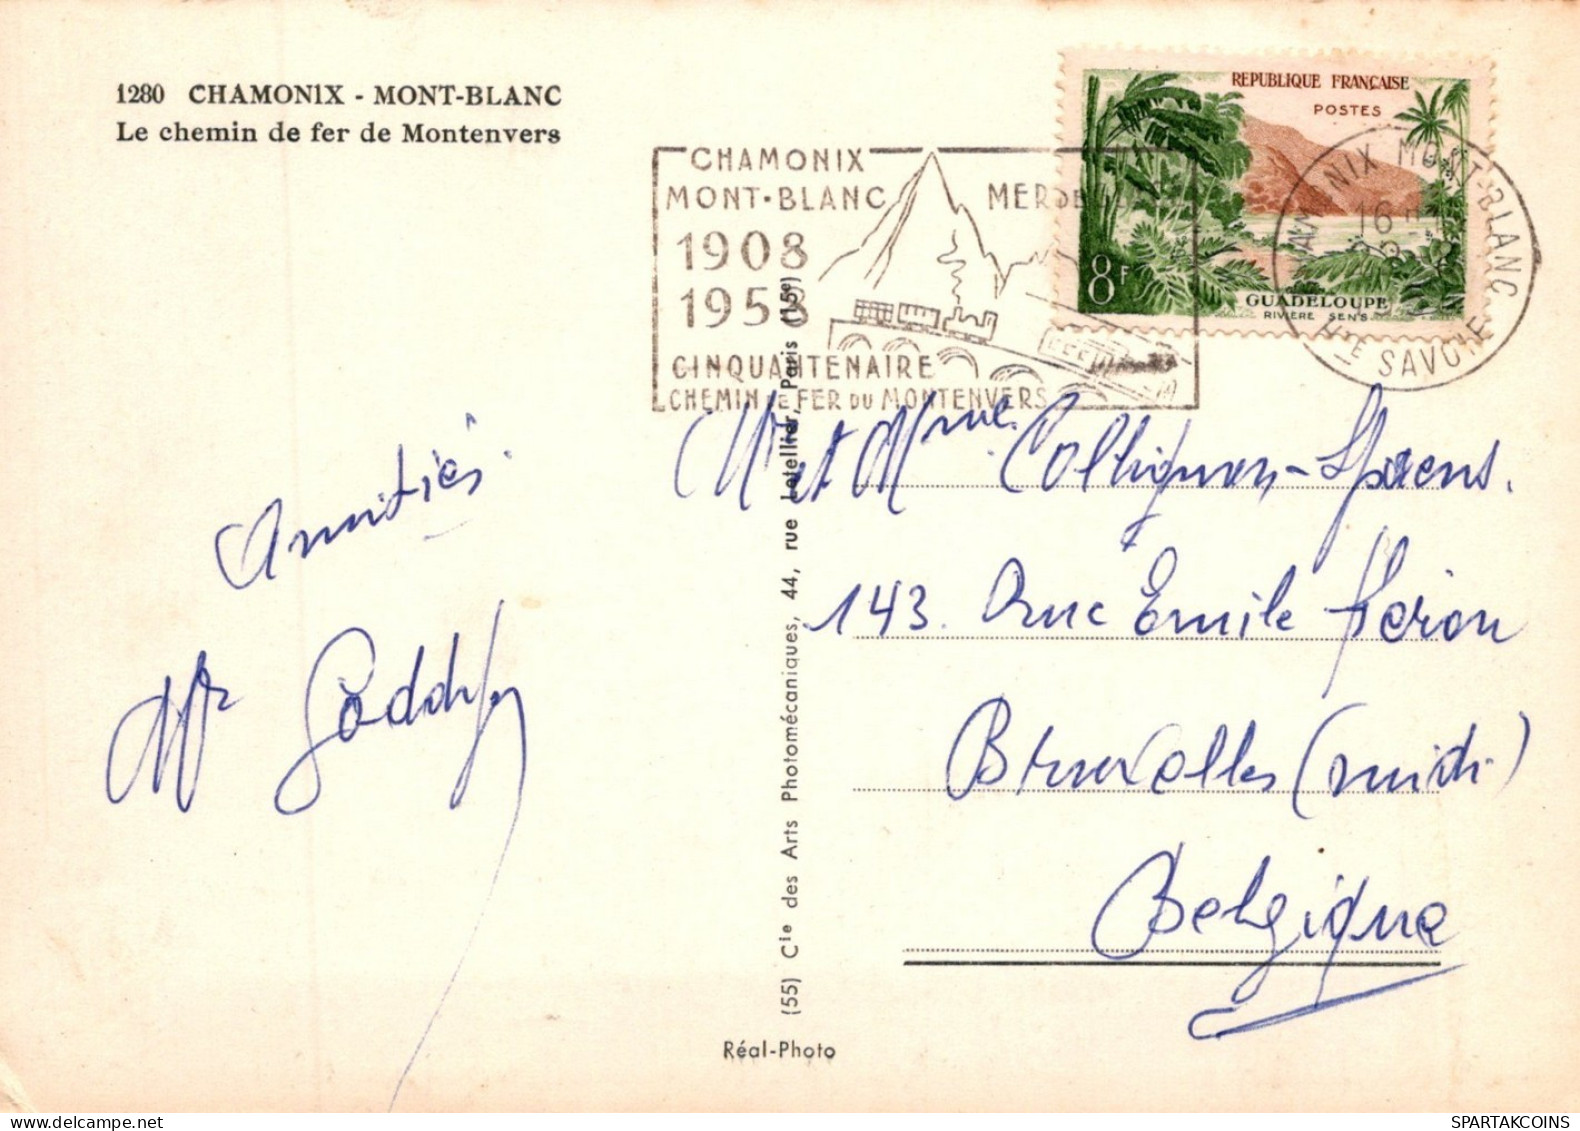 1280 CHAMONIX - MONT-BLANC
Le chemin de fer de Montenvers
REPUBLIQUE FRANÇAISE
POSTES
8F
GUADELOUPE
RIVIÈRE SENS
CHAMONIX
MONT-BLANC
MER DE
1908
1958
CINQUANTENAIRE
CHEMIN DE FER DU MONTENVERS
CHAMONIX MONT-BLANC
16 H
Hte SAVOIE
Amitiés.
Mr et Mme Collignon-Spaens.
143. Rue Emile Féron
Bruxelles (midi)
Belgique
(55) Cie des Arts Photomécaniques, 44, rue Letellier, Paris (15e)
Réal-Photo
SPARTAKCOINS